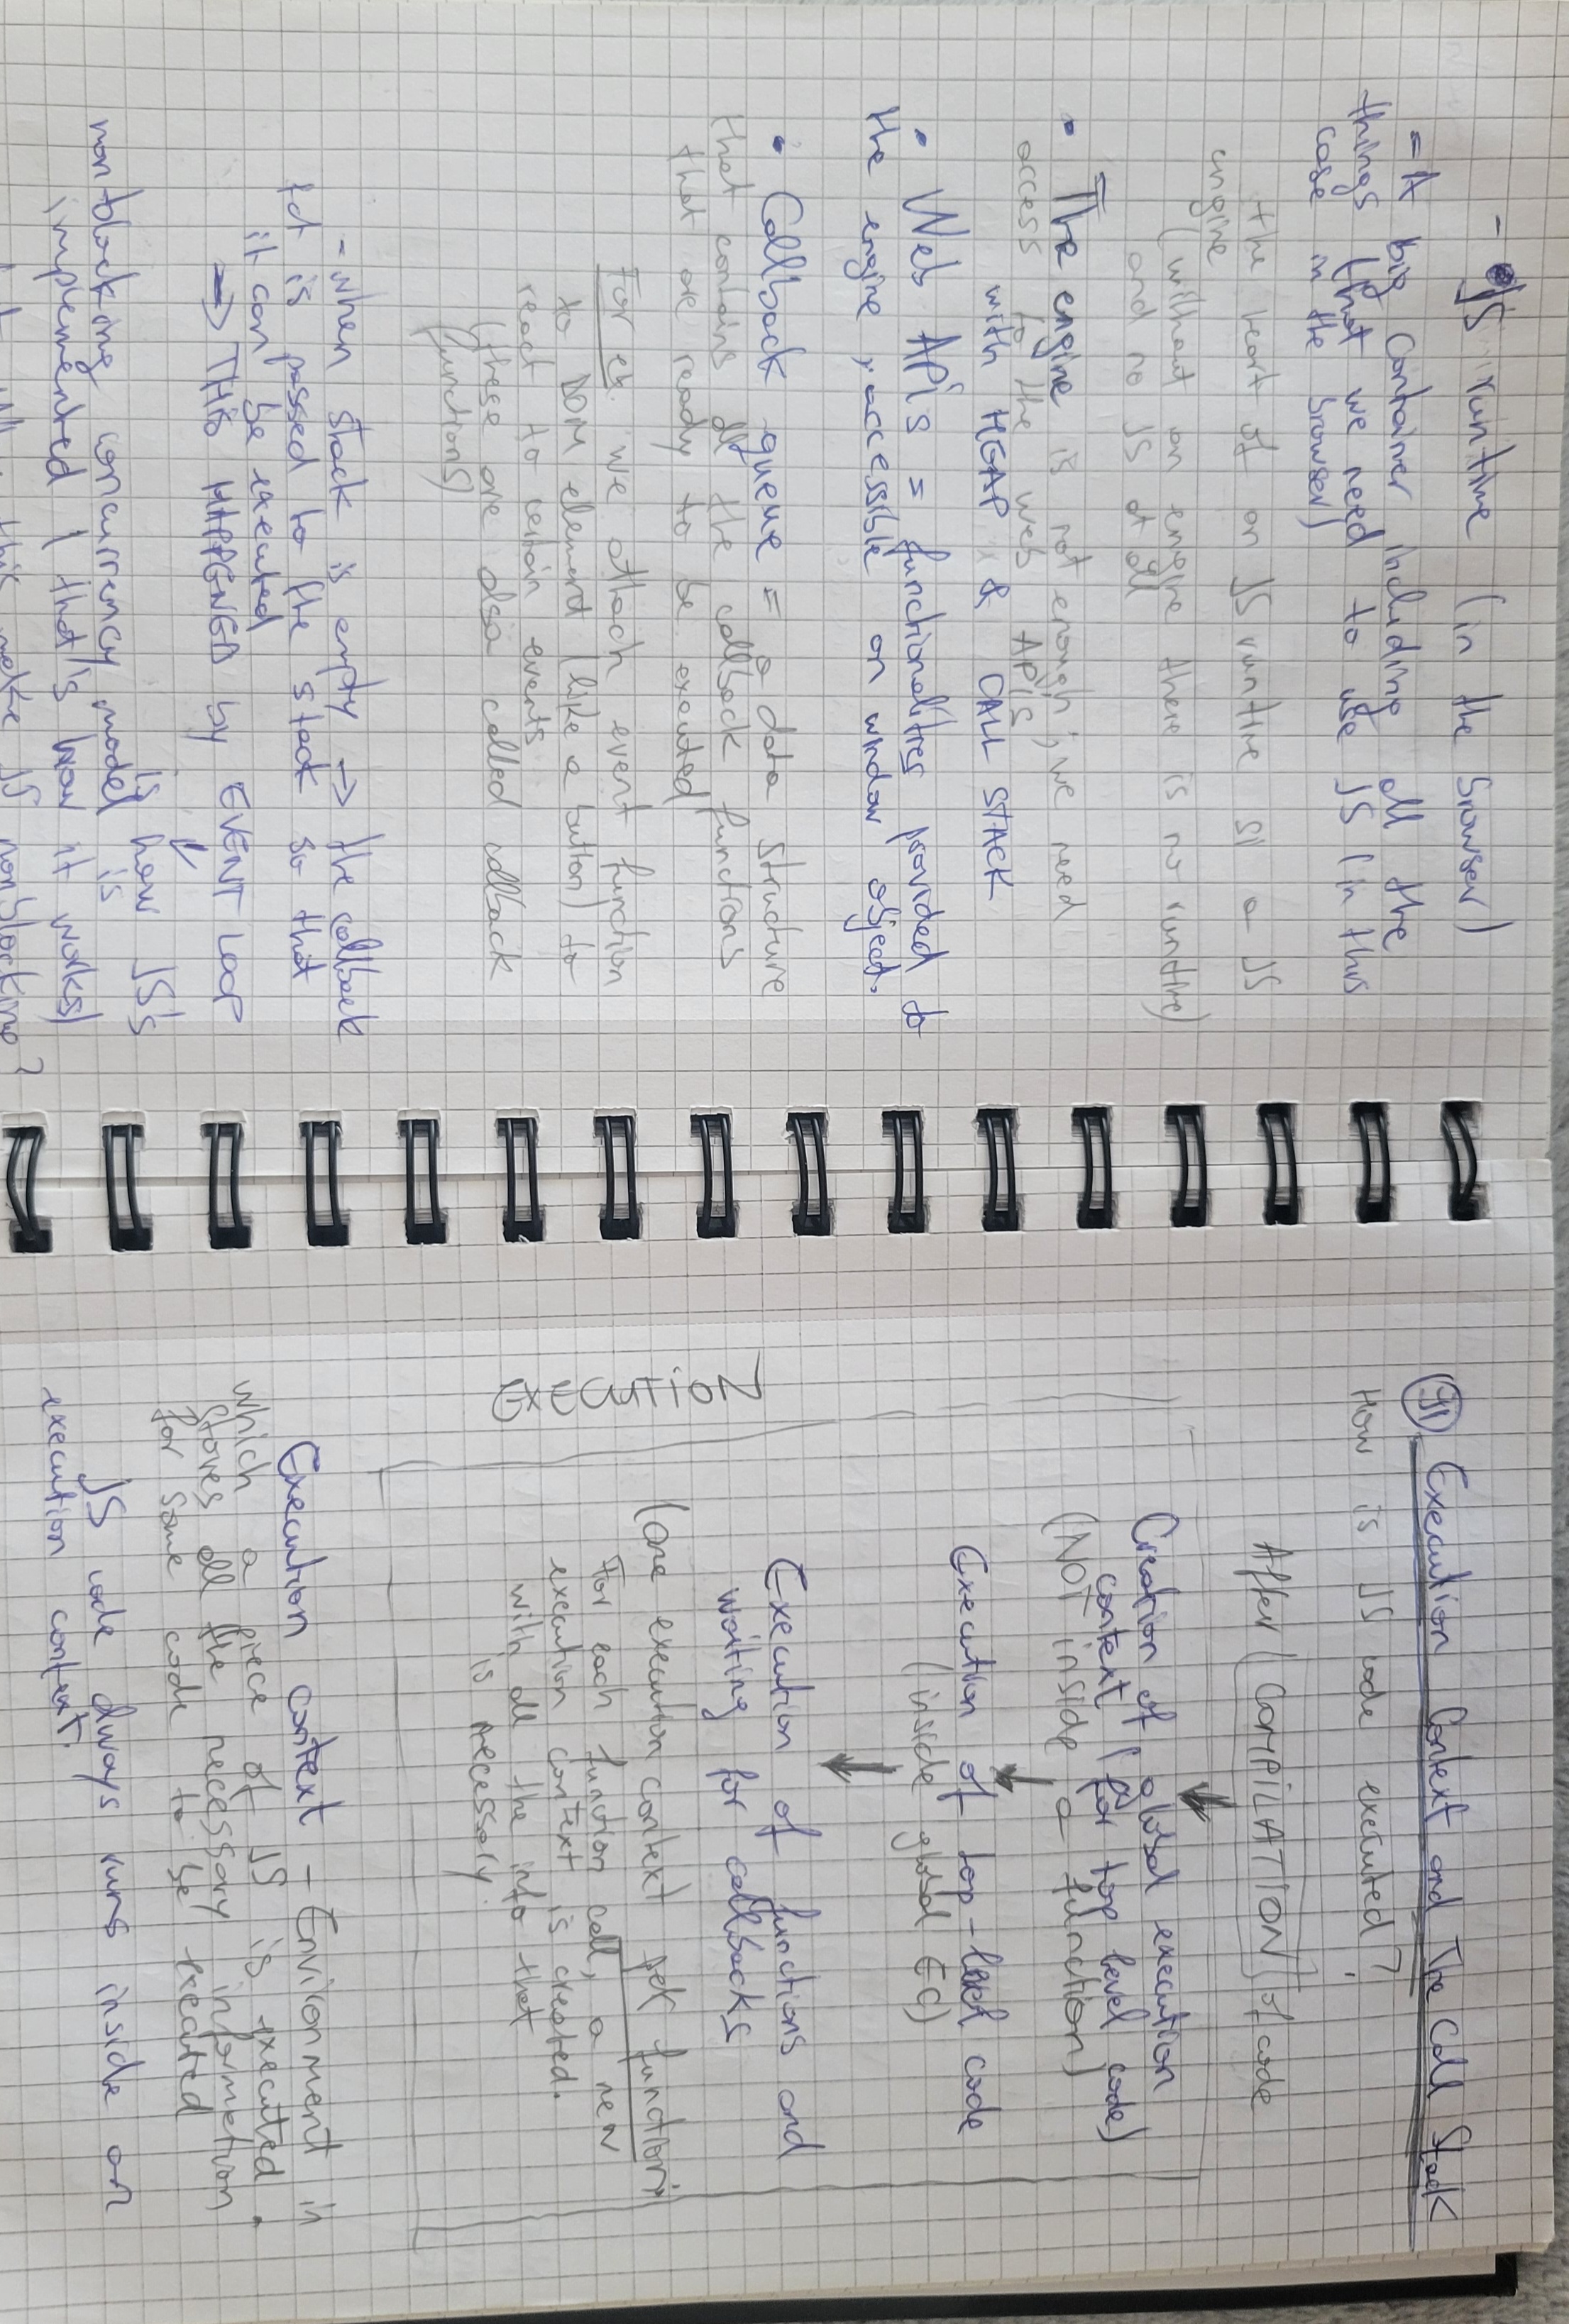 - JS runtime (in the browser)
= A big container including all the
things (that we need to use JS (in this
case in the browser)
the heart of an JS runtime si a JS
engine
(without an engine there is no runtime)
and no JS at all
• The engine is not enough, we need
access to the web APIs
with HEAP & CALL STACK
• Web APIs = functionalities provided to
the engine, accessible on window object.
• Callback queue = a data structure
that contains all the callback functions
that are ready to be executed
For ex. we attach event function
to DOM element (like a button) to
react to certain events
(these are also called callback
functions)
- when stack is empty → the callback
fct is passed to the stack so that
it can be executed
→ THIS HAPPENED by EVENT LOOP
is how JS's
nonblocking concurrency model is
implemented (that's how it works)
this make JS nonblocking?
91 Execution Context and The Call Stack
How is JS code executed?
After (COMPILATION) of code
Creation of global execution
context (for top level code)
(NOT inside a function)
Execution of top-level code
(inside global EC)
EXECUTION
Execution of functions and
waiting for callbacks
(One execution context per function)
For each function call, a new
execution context is created.
with all the info that
is necessary.
Execution context - Environment in
which a piece of JS is executed.
Stores all the necessary information
for some code to be executed
JS code always runs inside an
execution context.